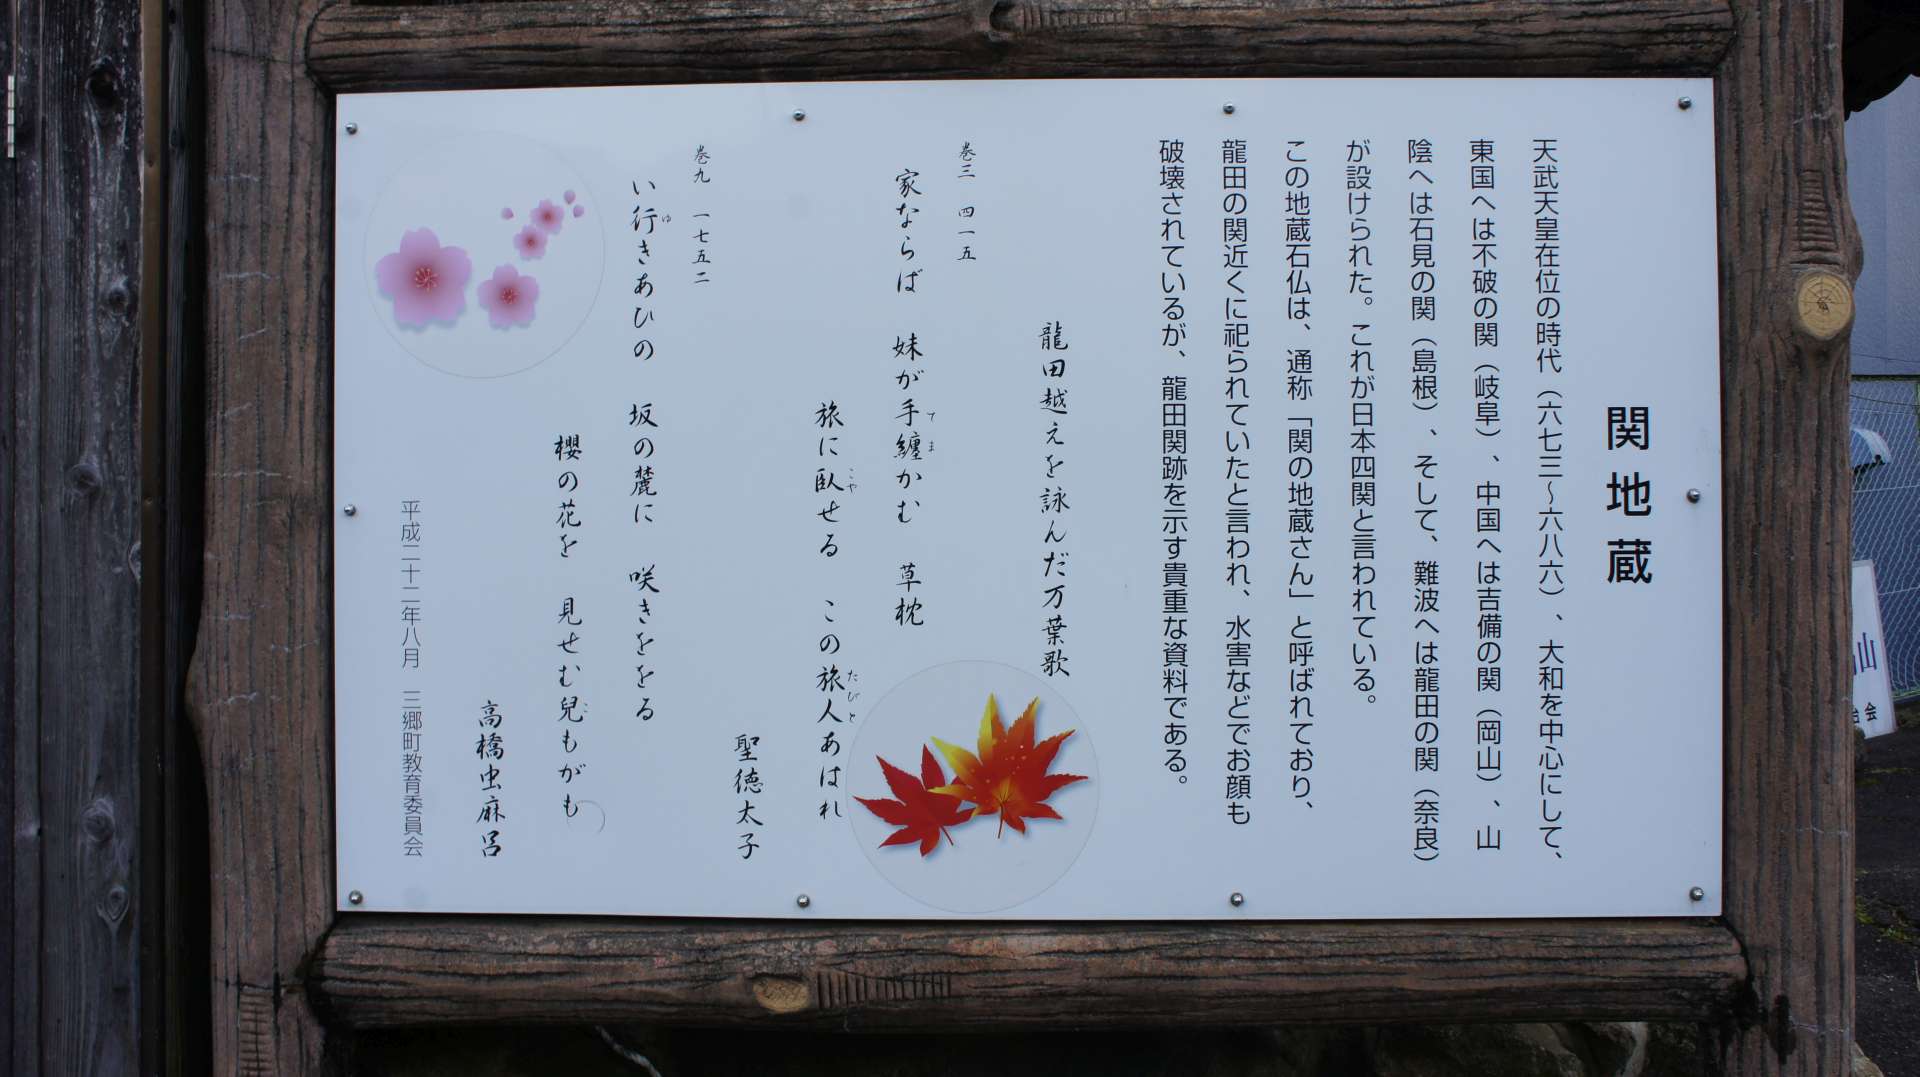 関地蔵
天武天皇在位の時代（六七三～六八六）、大和を中心にして、
東国へは不破の関（岐阜）、中国へは吉備の関（岡山）、山
陰へは石見の関（島根）、そして、難波へは龍田の関（奈良）
が設けられた。これが日本四関と言われている。
この地蔵石仏は、通称「関の地蔵さん」と呼ばれており、
龍田の関近くに祀られていたと言われ、水害などでお顔も
破壊されているが、龍田関跡を示す貴重な資料である。
龍田越えを詠んだ万葉歌
巻三 四一五
家ならば 妹が手纏かむ 草枕
てま
旅に臥せる この旅人あはれ
こや たびと
聖徳太子
巻九 一七五二
い行きあひの 坂の麓に 咲きををる
ゆ
櫻の花を 見せむ兒もがも
こ
高橋虫麻呂
平成二十二年八月 三郷町教育委員会
山
会